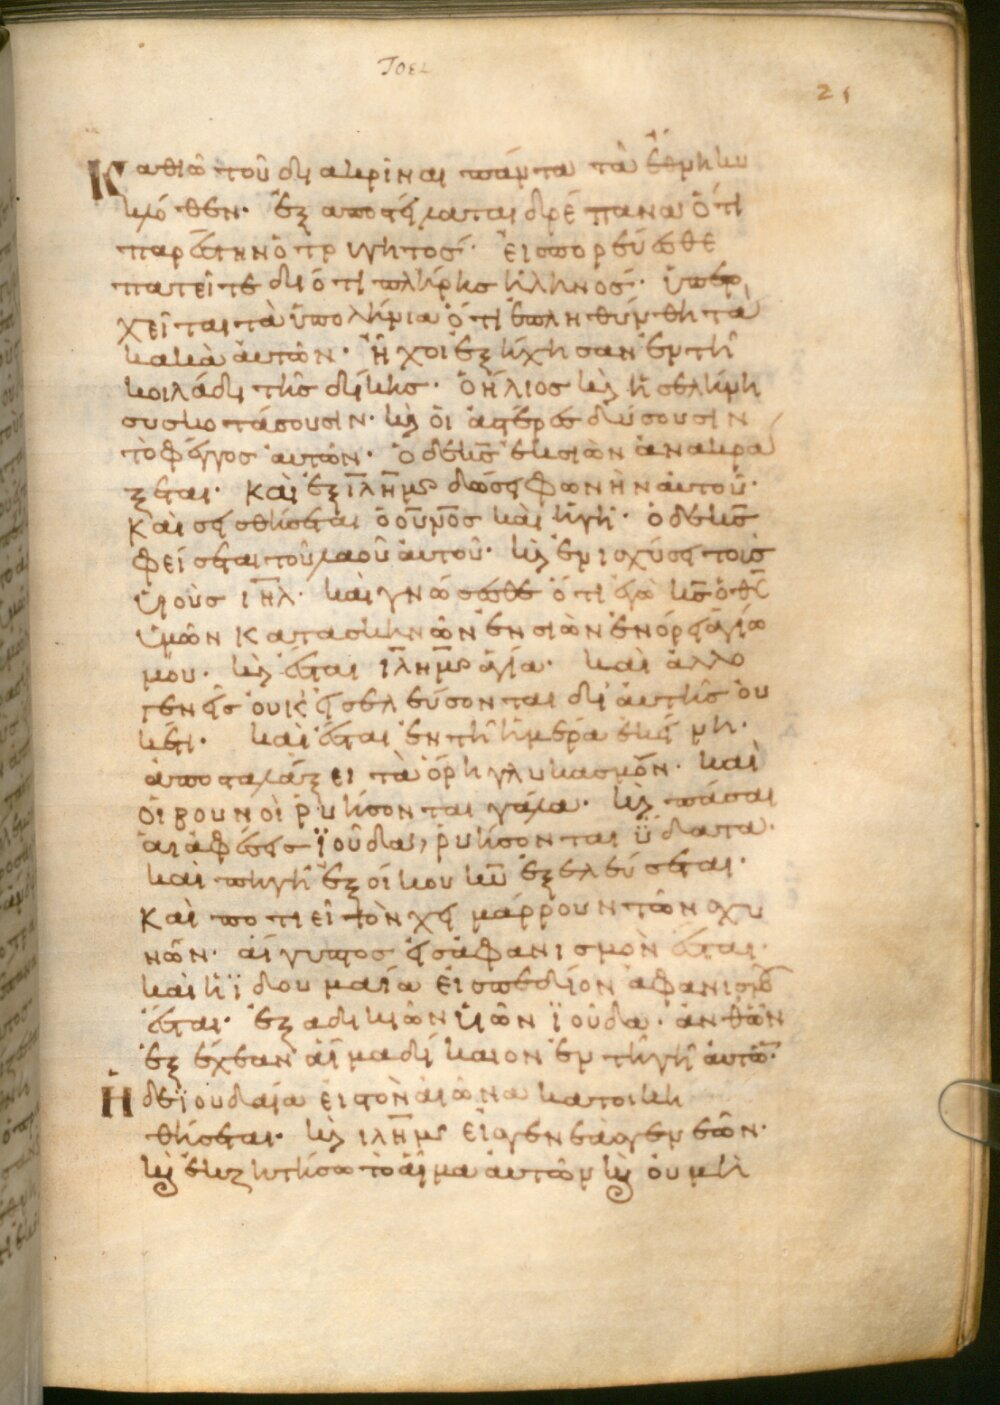 Ἰοελ
21
Καθιῶ τοῦ διακρῖναι πάντα τὰ ἔθνη κυ
κλόθεν· ἐξαποστείλαται δρέπανα ὅτι
παρέστην ὁ τρυγητός· εἰσπορεύεσθε
πατεῖτε διότι πλήρης ἡ ληνός· ὑπερ
χεῖται τὰ ὑπολήνια ὅτι ἐπληθύνθη τὰ
κακὰ αὐτῶν· ἦχοι ἐξήχησαν ἐν τῆ
κοιλάδι τῆς δίκης· ὁ ἥλιος κ(αὶ) ἡ σελήνη
συσκοτάσουσιν· κ(αὶ) οἱ ἀστέρες δύσουσιν
τὸ φέγγος αὐτῶν· ὁ δὲ κ̅ς̅ ἐκ σιὼν ἀνακρά
ξεται· καὶ ἐξ ι̅λ̅η̅μ̅ δώσει φωνὴν αὐτοῦ·
καὶ σεισθήσεται ὁ οὐ̅ν̅ο̅ς̅ καὶ ἡ γῆ· ὁ δὲ κ̅ς̅
φείσεται τοῦ λαοῦ αὐτοῦ· κ(αὶ) ἐνισχύσει τοὺς
υἱοὺς ι̅η̅λ̅· καὶ γνώσεσθε ὅτι ἐγὼ κ̅ς̅ ὁ θ̅ς̅
ὑμῶν κατασκηνῶν ἐν σιὼν ἐν ὄρει ἁγίω
μου· κ(αὶ) ἔσται ι̅λ̅η̅μ̅ ἁγία· καὶ ἀλλο
γενεῖς οὐκ εἰσελεύσονται δι αὐτῆς οὐ
κέτι· καὶ ἔσται ἐν τῆ ἡμέρα ἐκείνη·
ἀποσταλάξει τὰ ὄρη γλυκασμόν· καὶ
οἱ βουνοὶ ῥυήσονται γάλα· κ(αὶ) πᾶσαι
αἱ ἀφέσεις ϊούδα, ῥυήσονται ὕδατα·
καὶ πηγὴ ἐξ οἴκου κ̅υ̅ ἐξελεύσεται·
καὶ ποτιεῖ τὸν χειμάρρουν τῶν σχυ
νῶν· αἴγυπτος εἰς ἀφανισμὸν ἔσται·
καὶ ἡ ϊδουμαία εἰς πεδίον ἀφανισμοῦ
ἔσται· ἐξ αδικιῶν υἱῶν ϊούδα· ἀνθῶν
ἐξέχεαν αἷμα δίκαιον ἐν τῆ γῆ αὐτῶν·
Ἡ δὲ ϊουδαία εἰς τὸν αἰῶνα κατοικη
θήσεται· κ(αὶ) ι̅λ̅η̅μ̅ εἰς γενεὰς γενεῶν·
κ(αὶ) ἐκζητήσω τὸ αἷμα αὐτῶν κ(αὶ) οὐ μὴ